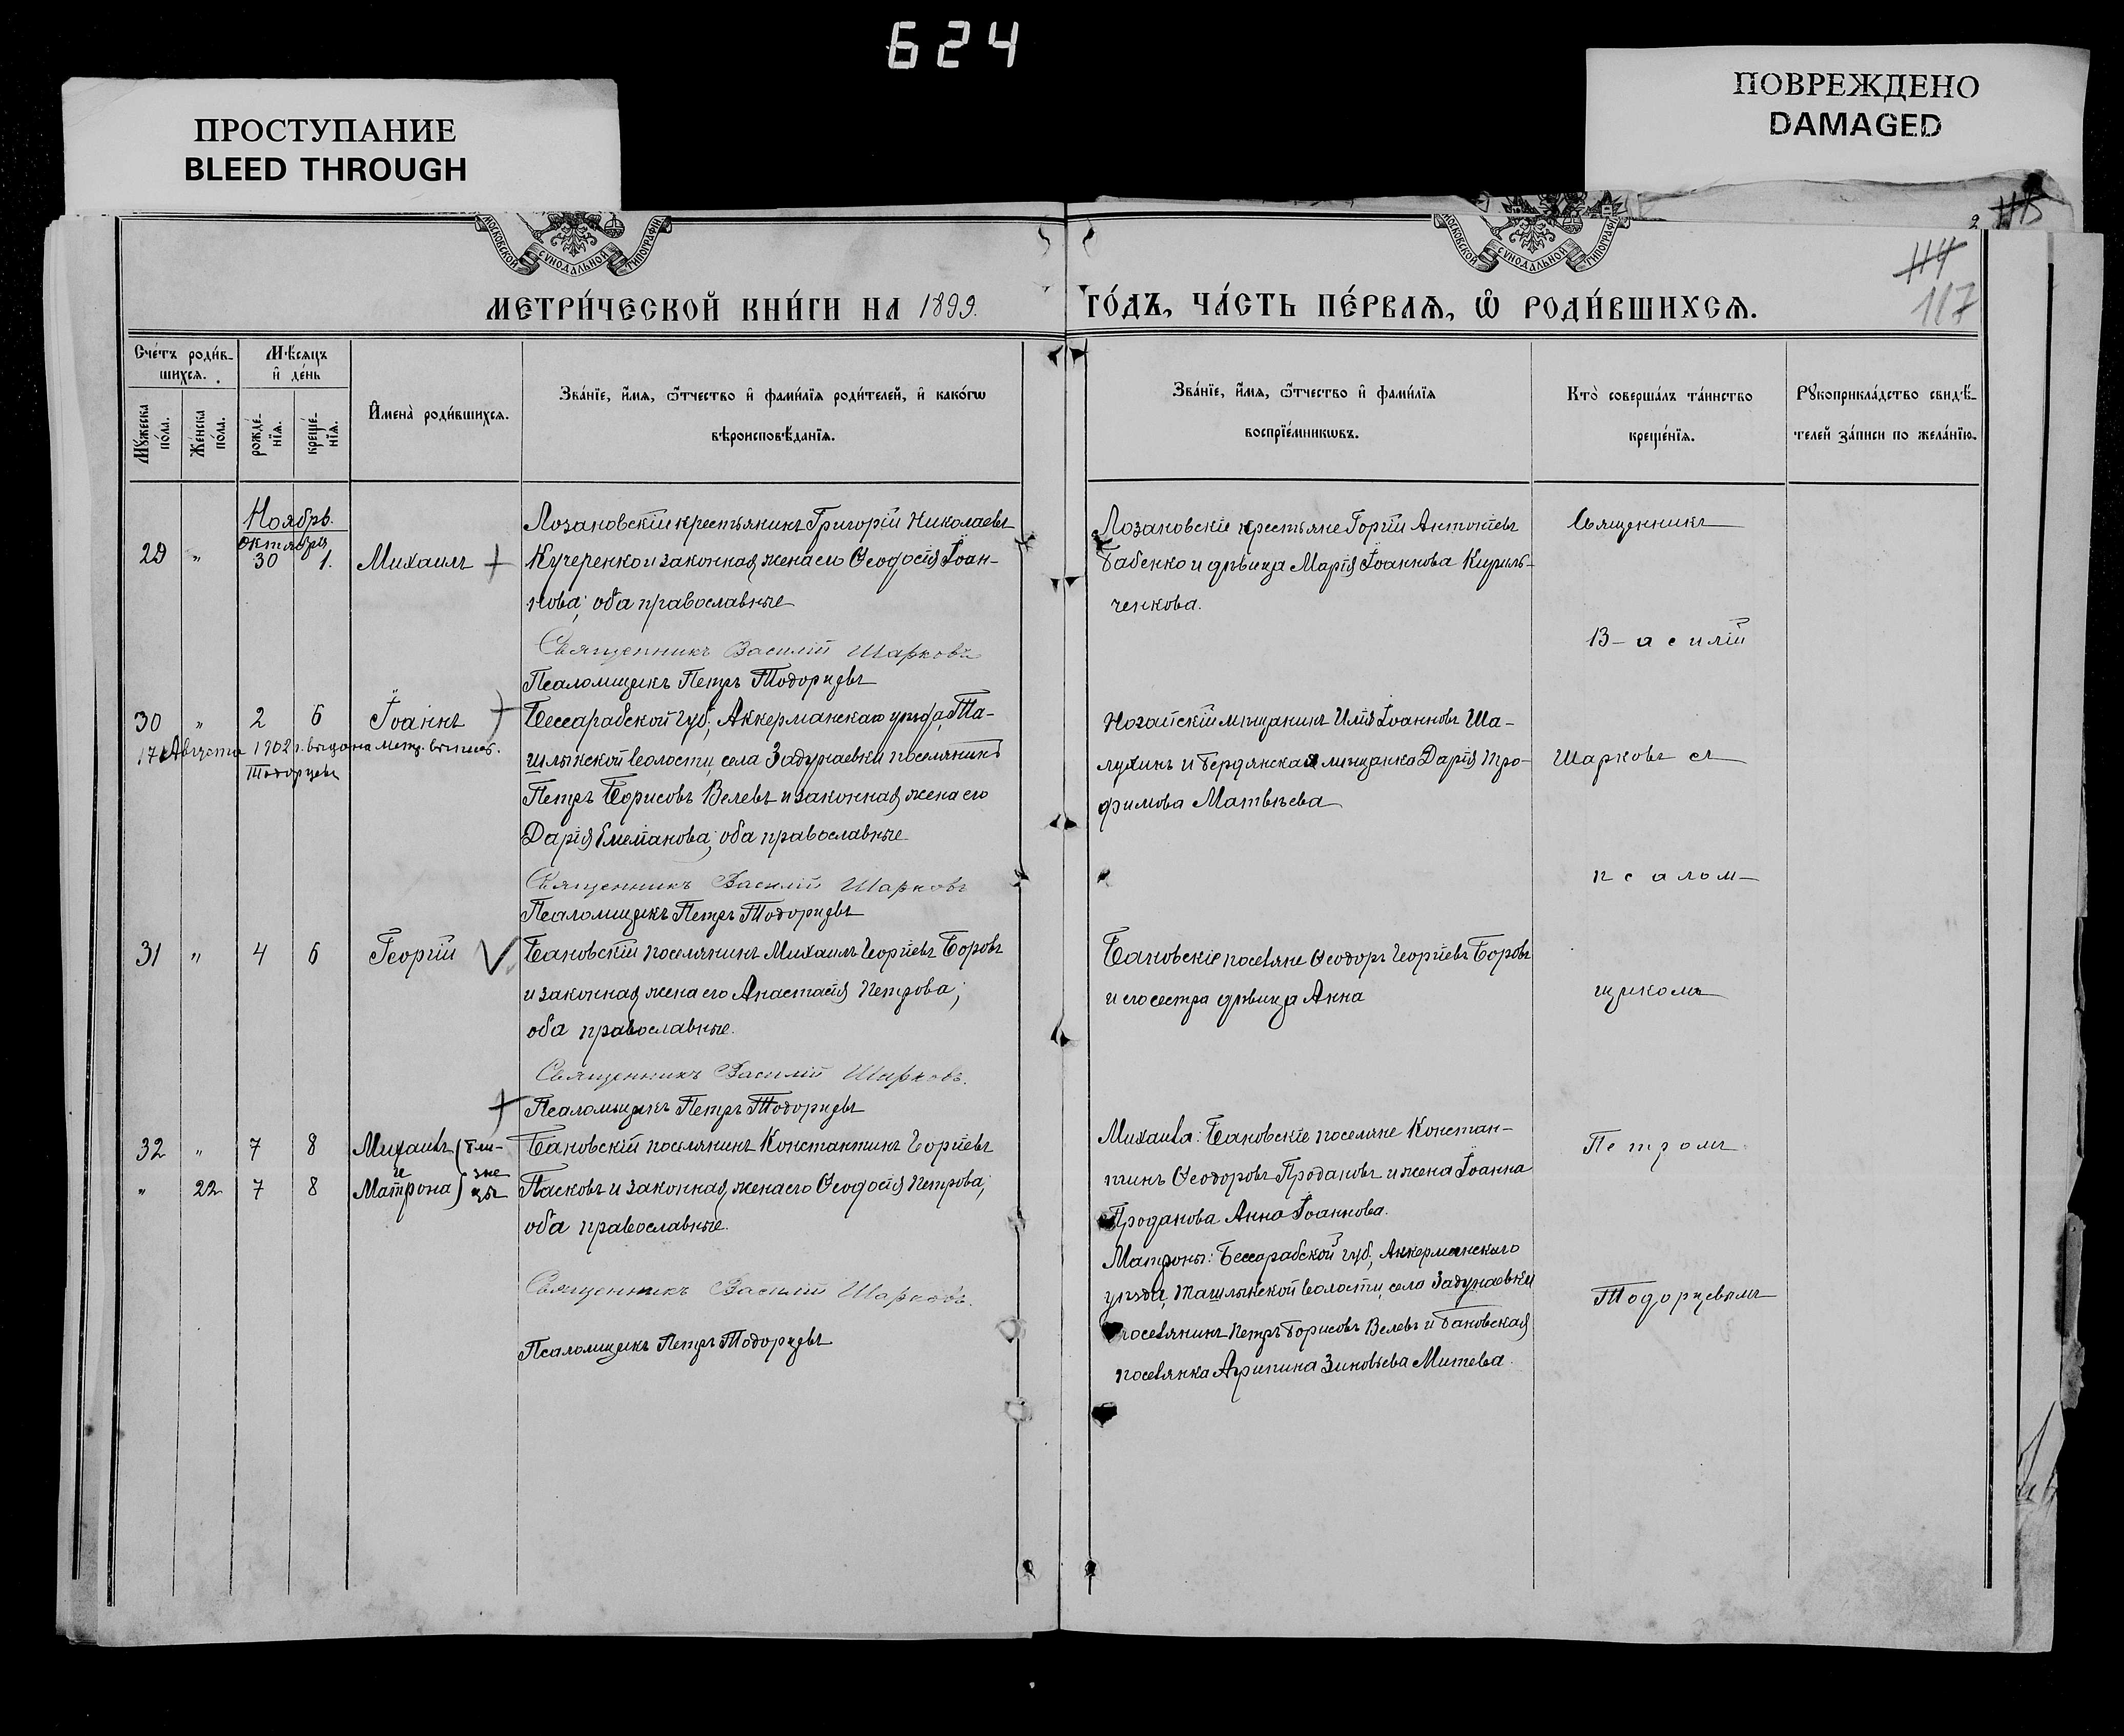 624
ПРОСТУПАНИЕ
BLEED THROUGH
ПОВРЕЖДЕНО
DAMAGED
МОСКОВСКОЙ СѴНОДАЛЬНОЙ ТИПОГРАФІИ
МОСКОВСКОЙ СѴНОДАЛЬНОЙ ТИПОГРАФІИ
114
117
МЕТРИ́ЧЕСКОЙ КНИ́ГИ НА 1899.
ГО́ДЪ, ЧА́СТЬ ПЕ́РВАЯ, Ѡ҆ РОДИ́ВШИХСЯ.
Сче́тъ роди́в-
шихся.
Мѣ́сяцъ
и҆ де́нь
Му́жеска
по́ла.
Же́нска
по́ла.
рожде́-
нїя.
креще́-
нїя.
И҆мена̀ роди́вшихся.
Зва́нїе, и҆́мя, ѻ҆́тчество и҆ фами́лїя роди́телей, и҆ како́гѡ
вѣроисповѣ́данїя.
Зва́нїе, и҆́мя, ѻ҆́тчество и҆ фами́лїя
воспрїе́мникѡвъ.
Кто̀ соверша́лъ та́инство
креще́нїя.
Рꙋкоприкла́дство свидѣ́-
телей за́писи по жела́нїю.
Ноябрь.
Октября
29 " 30 1. Михаилъ
Лозановскій крестьянинъ Григорій Николаевъ
Кучеренко и законная жена его Ѳеодосія Іоан-
нова; оба православные
Священникъ Василій Шарковъ
Псаломщикъ Петръ Тодорцевъ
Лозановскіе крестьяне Горгій Антоніевъ
Бабенко и дѣвица Марія Іоаннова Кириль-
ченкова.
30 " 2 6 Іоаннъ
17 Августа 1902 г. выдана метр. выпись.
Тодорцевъ
Бессарабской губ., Аккерманскаго уѣзда, Та-
шлыкской волости, села Задунаевки поселянинъ
Петръ Борисовъ Велевъ и законная жена его
Дарія Емеліанова; оба православные
Священникъ Василій Шарковъ
Псаломщикъ Петръ Тодорцевъ
Ногайскій мѣщанинъ Илія Іоанновъ Ша-
лухинъ и бердянская мѣщанка Дарія Тро-
фимова Матвѣева
31 " 4 6 Георгій
Бановскій поселянинъ Михаилъ Георгіевъ Боровъ
и законная жена его Анастасія Петрова;
оба православные.
Священникъ Василій Шарковъ.
Псаломщикъ Петръ Тодорцевъ
Бановскіе поселяне Ѳеодоръ Георгіевъ Боровъ
и его сестра дѣвица Анна
32 " 7 8 Михаилъ (бли-
и
" 22 7 8 Матрона) знецы
Бановскій поселянинъ Константинъ Георгіевъ
Пасковъ и законная жена его Ѳеодосія Петрова;
оба православные.
Священникъ Василій Шарковъ.
Псаломщикъ Петръ Тодорцевъ
Михаила: Бановскіе поселяне Констан-
тинъ Ѳеодоровъ Продановъ и жена Іоанна
Проданова Анна Іоаннова.
Матроны: Бессарабской губ., Аккерманскаго
уѣзда, Ташлыкской волости, села Задунаевки
поселянинъ Петръ Борисовъ Велевъ и Бановская
поселянка Агрипина Зиновіева Митева.
Священникъ
В-асилій
Шарковъ съ
псалом-
щикомъ
Петромъ
Тодорцевымъ